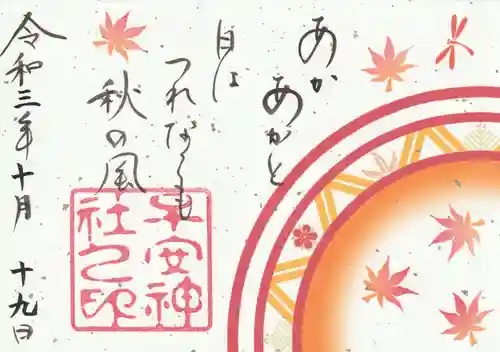 あか
あかと
日は
つれなくも
秋の風
令和三年十月 十九日
平安神
社之印